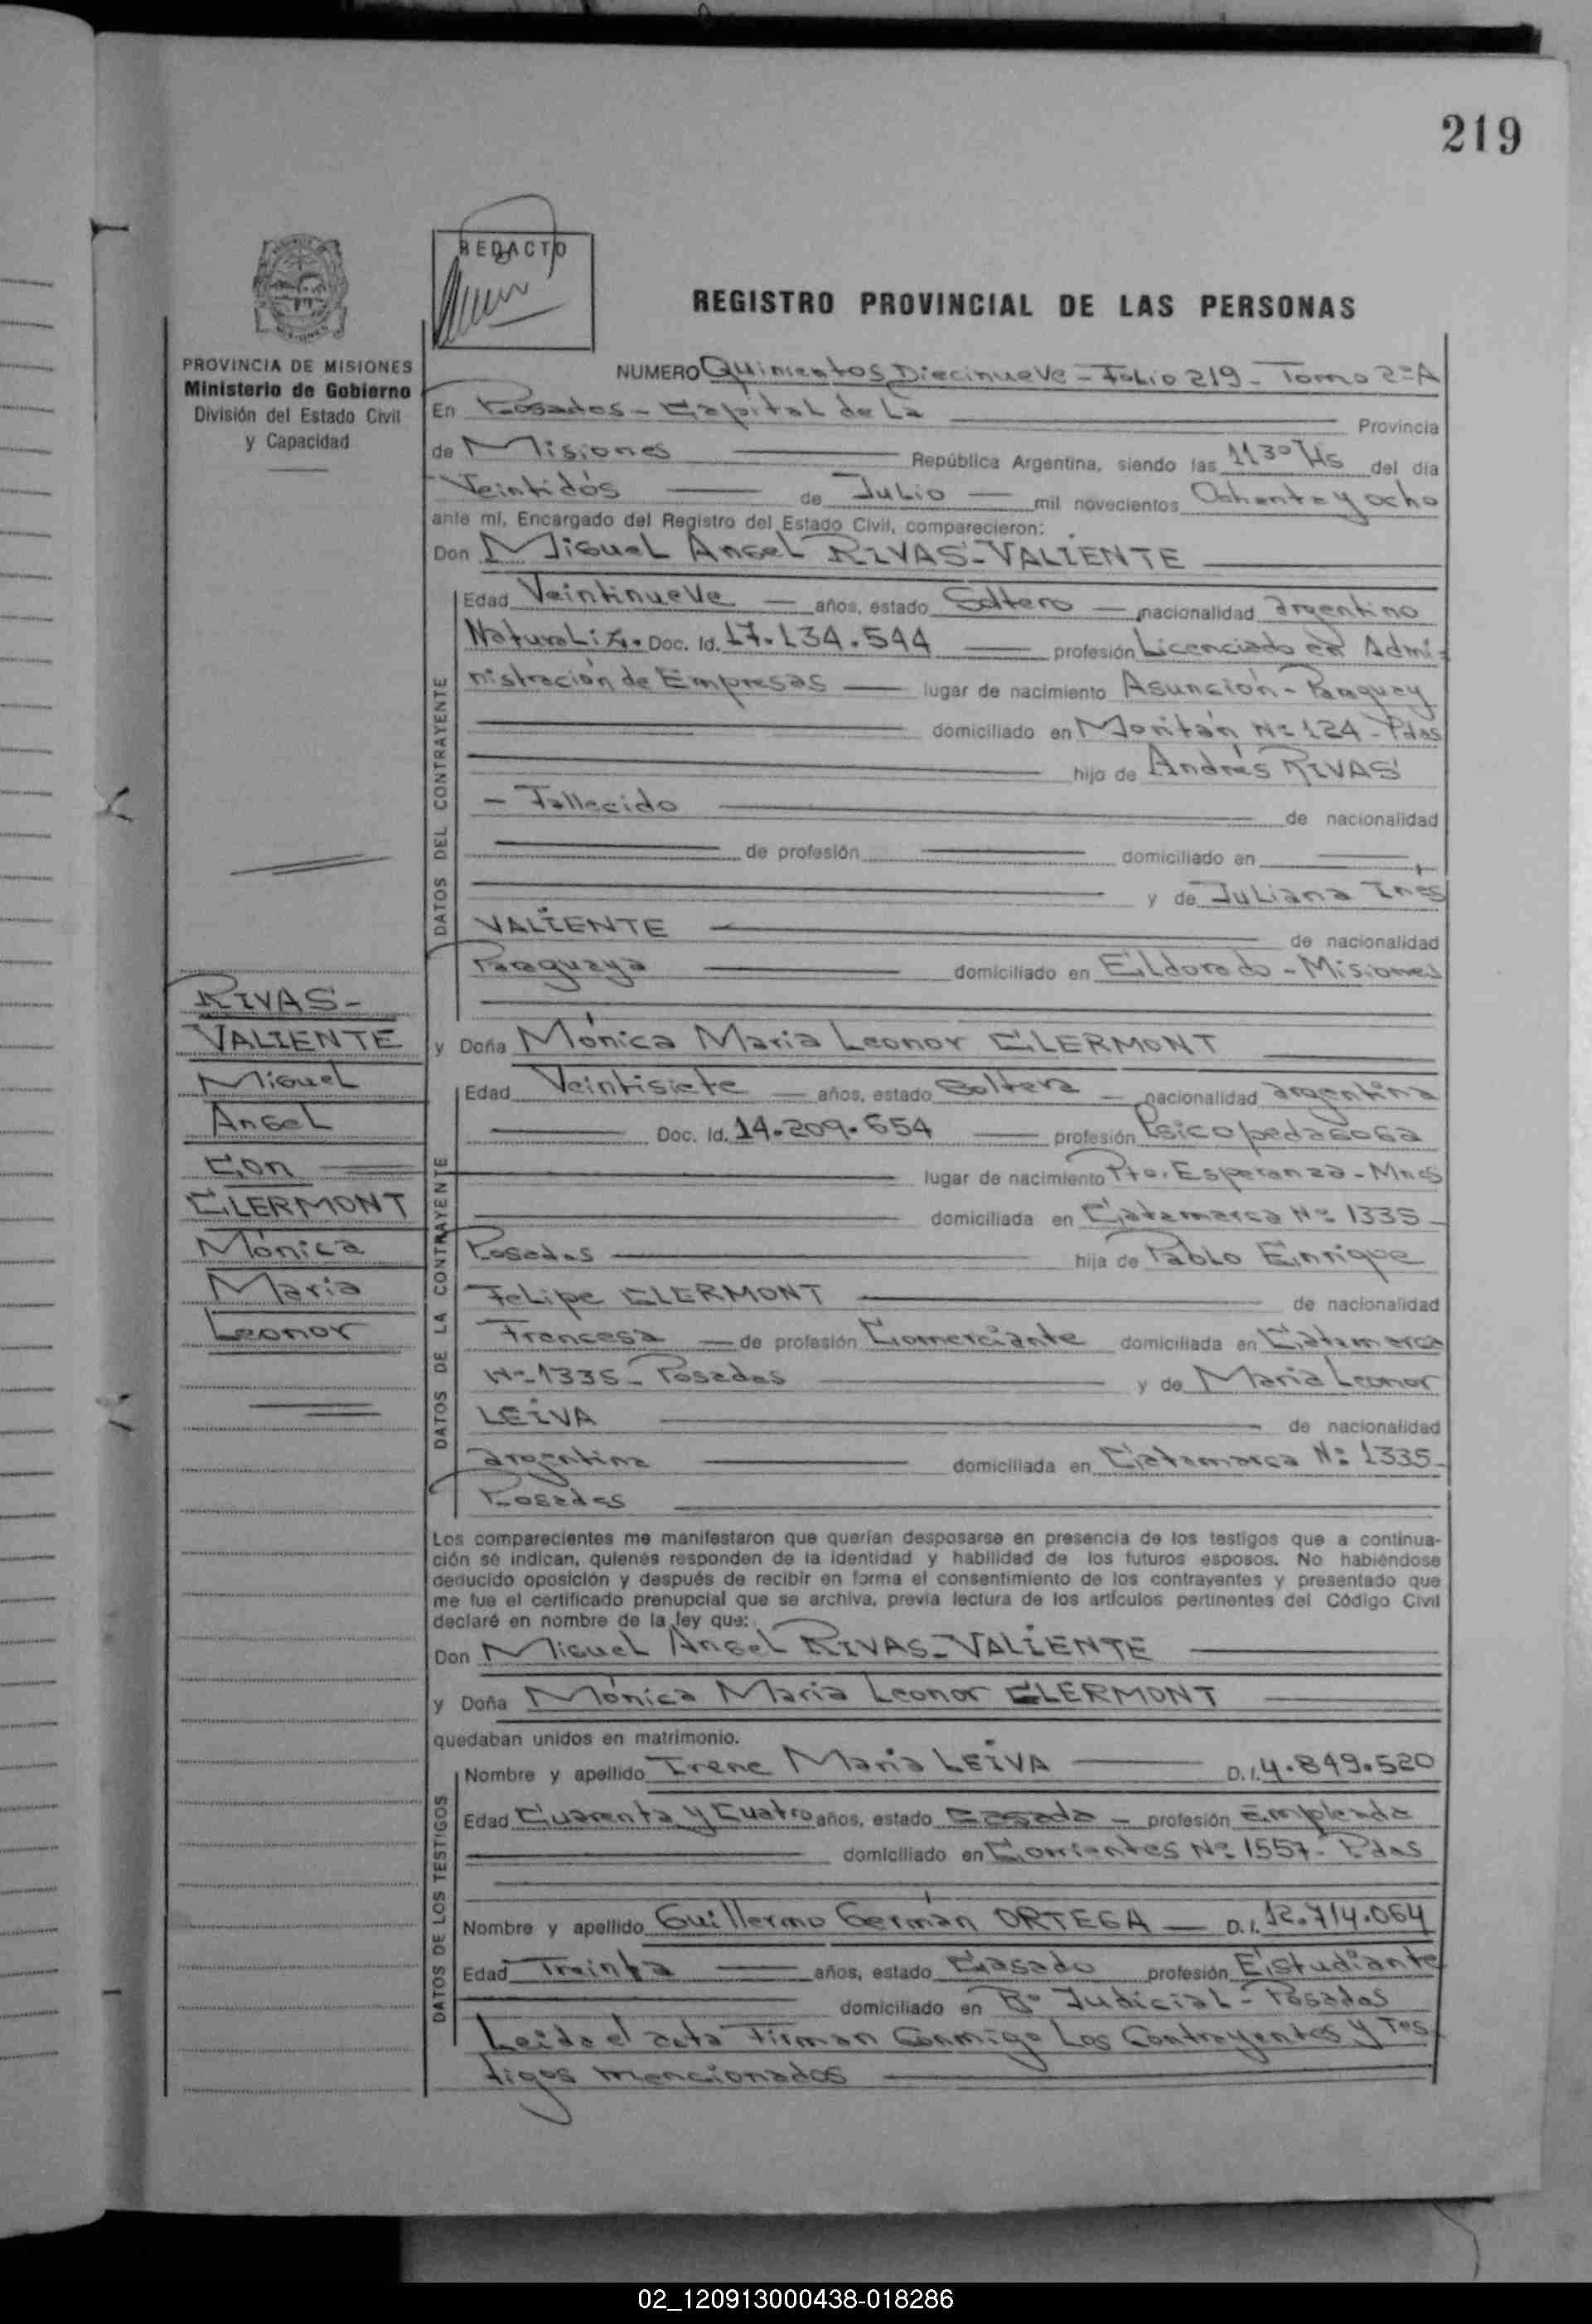 219
REDACTO
REGISTRO PROVINCIAL DE LAS PERSONAS
PROVINCIA DE MISIONES
Ministerio de Gobierno
División del Estado Civil
y Capacidad
NUMERO Quinientos Diecinueve - Folio 219 - Tomo 2º A
En Posadas - Capital de La Provincia
de Misiones República Argentina, siendo las 1130 Hs del día
Veintidós de Julio mil novecientos Ochenta y ocho
ante mí, Encargado del Registro del Estado Civil, comparecieron:
Don Miguel Angel RIVAS-VALIENTE
DATOS DEL CONTRAYENTE
Edad Veintinueve años, estado Soltero nacionalidad argentino
Naturaliz. Doc. Id. 17.134.544 profesión Licenciado en Admi-
nistración de Empresas lugar de nacimiento Asunción - Paraguay
domiciliado en Moritán Nº 124 - Pdas
hijo de Andrés RIVAS
- Fallecido de nacionalidad
de profesión domiciliado en
y de Juliana Ines
VALIENTE de nacionalidad
Paraguaya domiciliado en Eldorado - Misiones
RIVAS-
VALIENTE
Miguel
Angel
Con
CLERMONT
Mónica
Maria
Leonor
y Doña Mónica Maria Leonor CLERMONT
DATOS DE LA CONTRAYENTE
Edad Veintisiete años, estado Soltera nacionalidad argentina
Doc. Id. 14.209.654 profesión Psicopedagoga
lugar de nacimiento Pto. Esperanza - Mnes
domiciliada en Catamarca Nº 1335 -
Posadas hija de Pablo Enrique
Felipe CLERMONT de nacionalidad
Francesa de profesión Comerciante domiciliada en Catamarca
Nº 1335 - Posadas y de Maria Leonor
LEIVA de nacionalidad
argentina domiciliada en Catamarca Nº 1335 -
Posadas
Los comparecientes me manifestaron que querían desposarse en presencia de los testigos que a continua-
ción se indican, quienes responden de la identidad y habilidad de los futuros esposos. No habiéndose
deducido oposición y después de recibir en forma el consentimiento de los contrayentes y presentado que
me fue el certificado prenupcial que se archiva, previa lectura de los artículos pertinentes del Código Civil
declaré en nombre de la ley que:
Don Miguel Angel RIVAS-VALIENTE
y Doña Mónica Maria Leonor CLERMONT
quedaban unidos en matrimonio.
DATOS DE LOS TESTIGOS
Nombre y apellido Irene Maria LEIVA D.I. 4.849.520
Edad Cuarenta y Cuatro años, estado Casada profesión Empleada
domiciliado en Corrientes Nº 1557 - Pdas
Nombre y apellido Guillermo Germán ORTEGA D.I. 12.714.064
Edad Treinta años, estado Casado profesión Estudiante
domiciliado en Bº Judicial - Posadas
Leida el acta Firman Conmigo Los Contrayentes y Tes-
tigos mencionados
02_120913000438-018286